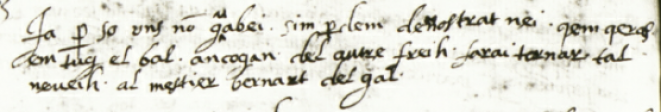 Ja p so vns no gabei. sim pdem demostrat nei. qem geros
em tug el bal. ancogan del autre freih. farai tornar tal
neueih. al mestier bernart del gal.